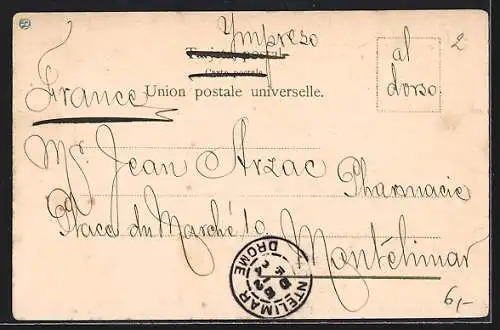 Impreso
2
Tarjeta postal
Carte postale
al
dorso
France
Union postale universelle.
Mr. Jean Arzac
Pharmacie
Place du Marché 10
Montélimar
NTELIMAR
DROME
6,-